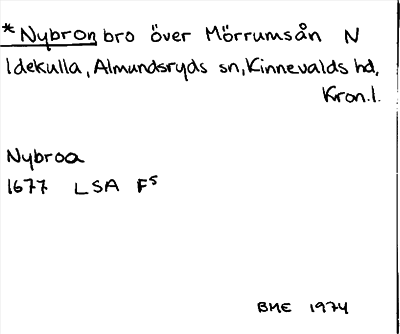 *Nybron bro över Mörrumsån N
Idekulla, Almundsryds sn, Kinnevalds hd,
Kron.l.
Nybroa
1677 LSA F5
BME 1974